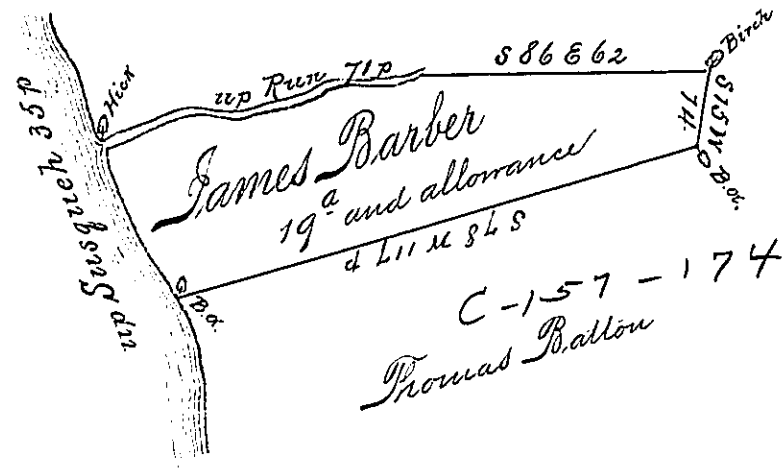 up Susqueh 35 p
Hick
up Run 71 p
S 86 E 62
Birch
S 15 W
14
B. O.
James Barber
19 a and allowance
S 78 W 117 p
B. O.
C-157-174
Thomas Batton